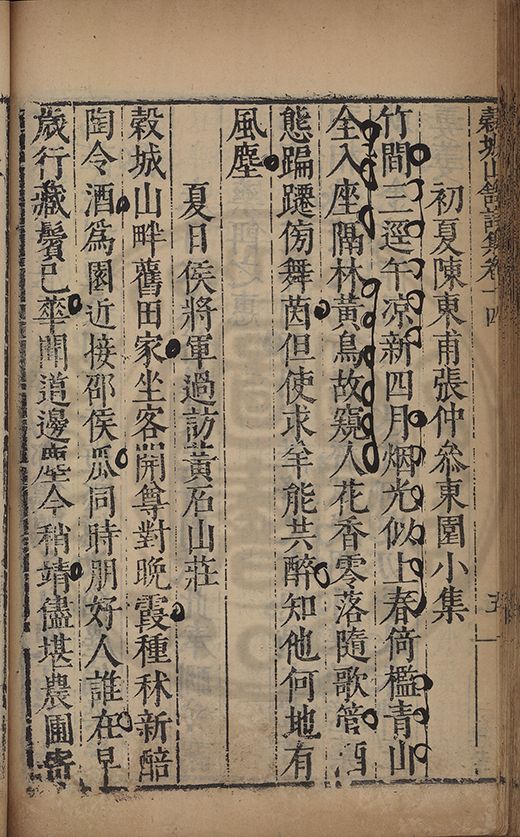 穀城山舘詩集卷十四 五
初夏陳東甫張仲叅東園小集
竹間三逕午凉新四月烟光似上春倚檻青山
全入座隔林黃鳥故窺人花香零落隨歌管酒
態蹁躚傍舞茵但使求羊能共醉知他何地有
風塵
夏日侯將軍過訪黃石山莊
穀城山畔舊田家坐客開尊對晚霞種秫新醅
陶令酒爲園近接邵侯瓜同時朋好人誰在早
歲行藏鬢已華聞道邊塵今稍靖儘堪農圃